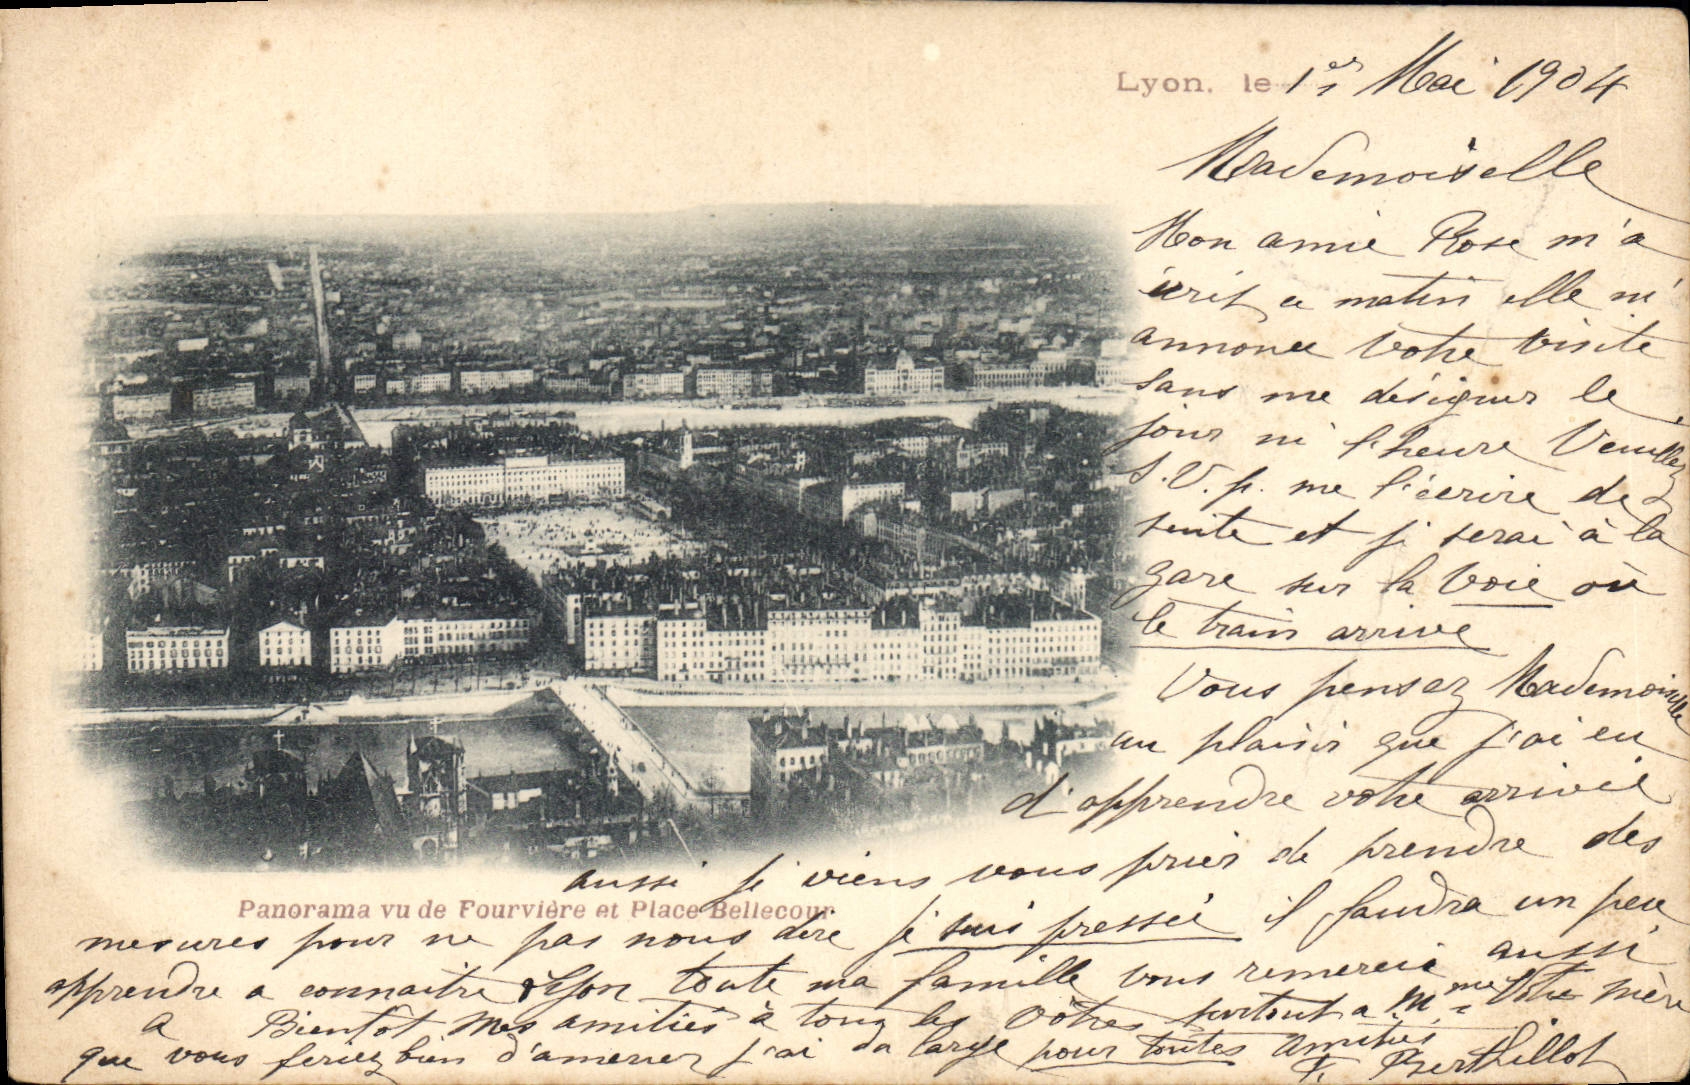 Lyon, le 1er Mai 1904
Mademoiselle
Mon amie Rose m'a
écrit ce matin elle m'
annonce votre visite
sans me désigner le
jour ni l'heure Veuillez
S.V.p. me l'écrire de
suite et je serai à la
gare sur la voie où
le train arrive
Vous pensez Mademoiselle
au plaisir que j'ai eu
d'apprendre votre arrivée
aussi je viens vous prier de prendre des
Panorama vu de Fourvière et Place Bellecour
mesures pour ne pas nous dire je suis pressée il faudra un peu
apprendre a connaitre Lyon toute ma famille vous remercie aussi
a Bientôt mes amitiés à tous les vôtres surtout a Mme Votre mère
que vous feriez bien d'amener j'ai du large pour toutes amitiés
F. Berthillot